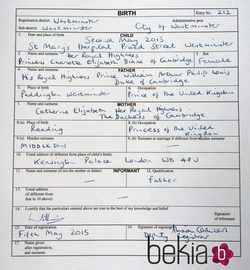 BIRTH
Entry No. 212
Registration district Westminster
Administrative area
Sub-district Westminster
City of Westminster
CHILD
1. Date and place of birth
Second May 2015
St Mary's Hospital Praed Street Westminster
2. Name and surname
Her Royal Highness
3. Sex
Princess Charlotte Elizabeth Diana of Cambridge
Female
FATHER
4. Name and surname
His Royal Highness Prince William Arthur Philip Louis
Duke of Cambridge
5. Place of birth
Paddington Westminster
6. Occupation
Prince of the United Kingdom
MOTHER
7. Name and surname
Catherine Elizabeth Her Royal Highness
The Duchess of Cambridge
8.(a) Place of birth
Reading
8.(b) Occupation
Princess of the United Kingdom
9.(a) Maiden surname
MIDDLETON
10. Usual address (if different from place of child's birth)
Kensington Palace London W8 4PU
INFORMANT
11. Name and surname (if not the mother or father)
12. Qualification
Father
13. Usual address
(if different from that in 10 above)
14. I certify that the particulars entered above are true to the best of my knowledge and belief
Signature of informant
15. Date of registration
Fifth May 2015
16. Signature of registrar
Deputy Registrar
17. Name given
after registration,
and surname
bekia b